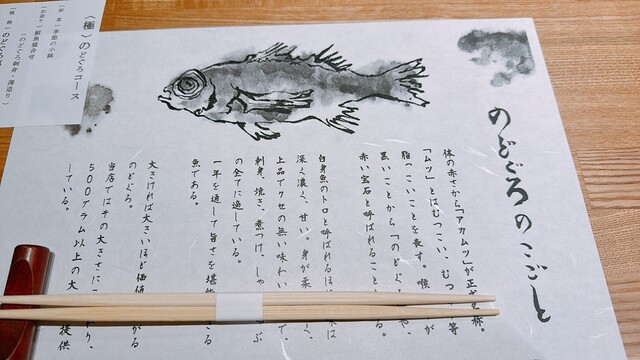 のどぐろのこごと
体の赤さから「アカムツ」が正 称。
「ムツ」とはむつこい、むつ 等
脂っこいことを表す。喉 が
黒いことから「のどぐ や、
赤い宝石と呼ばれること る。
白身魚のトロと呼ばれるほ 味は
深く濃く、甘い。身が柔 で、
上品でクセの無い味わい
刺身、焼き、煮つけ、しゃ ぶ
の全てに適している。
一年を通して旨さを堪 きる
魚である。
大きければ大きいほど価値 がる
のどぐろ。
当店ではその大きさにこ り、
500グラム以上の大 提供
している。
〈極〉のどぐろコース
季節の小鉢
鮮魚盛合せ
(のどぐろ刺身・薄造り)